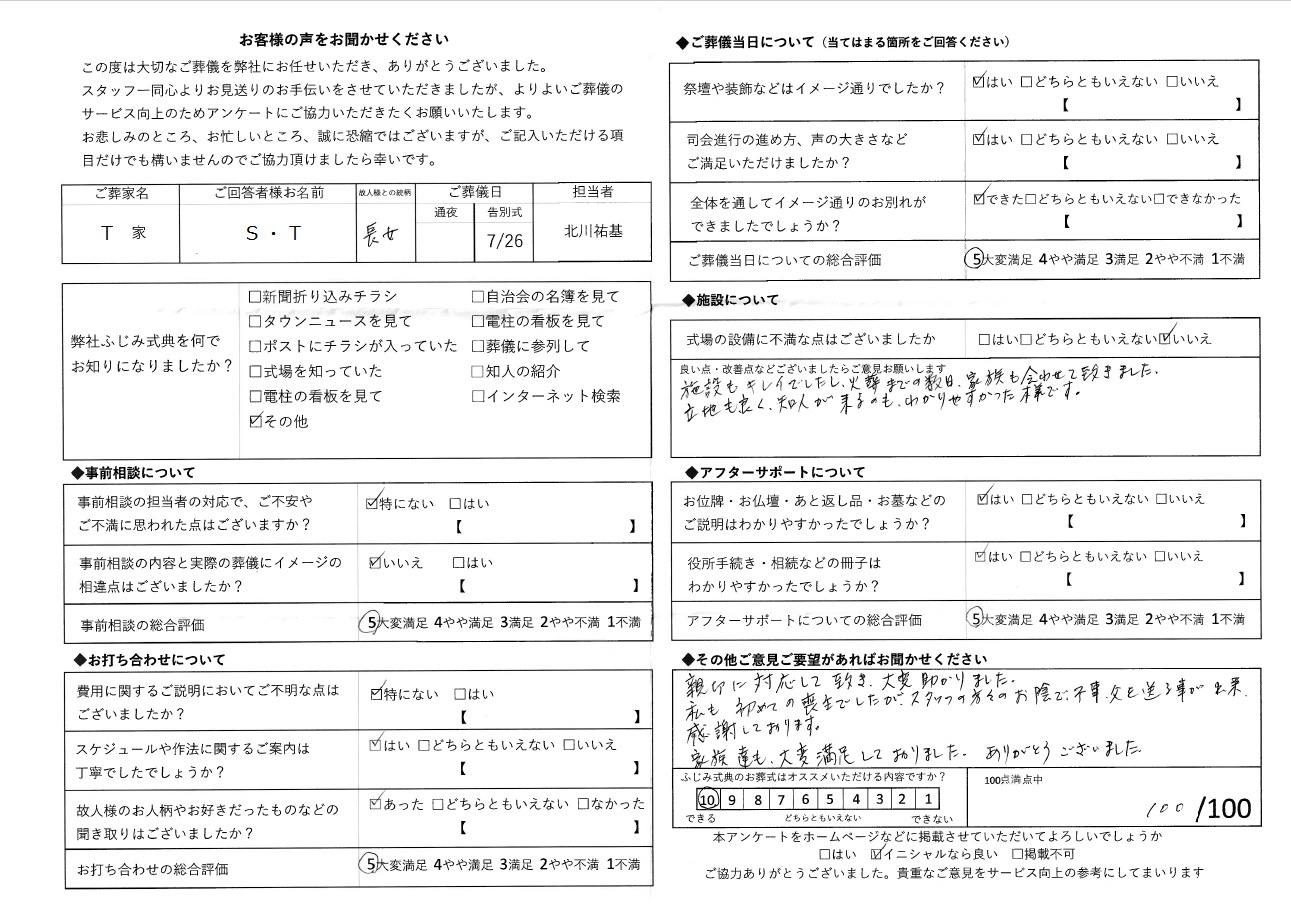 お客様の声をお聞かせください
この度は大切なご葬儀を弊社にお任せいただき、ありがとうございました。
スタッフ一同心よりお見送りのお手伝いをさせていただきましたが、よりよいご葬儀の
サービス向上のためアンケートにご協力いただきたくお願いいたします。
お悲しみのところ、お忙しいところ、誠に恐縮ではございますが、ご記入いただける項
目だけでも構いませんのでご協力頂けましたら幸いです。
ご葬家名 ご回答者様お名前 故人様との続柄 ご葬儀日 担当者
通夜 告別式
T 家 S・T 長女 7/26 北川祐基
弊社ふじみ式典を何で
お知りになりましたか?
☐新聞折り込みチラシ ☐自治会の名簿を見て
☐タウンニュースを見て ☐電柱の看板を見て
☐ポストにチラシが入っていた ☐葬儀に参列して
☐式場を知っていた ☐知人の紹介
☐電柱の看板を見て ☐インターネット検索
☑その他
◆事前相談について
事前相談の担当者の対応で、ご不安や
ご不満に思われた点はございますか?
☑特にない ☐はい
【 】
事前相談の内容と実際の葬儀にイメージの
相違点はございましたか?
☑いいえ ☐はい
【 】
事前相談の総合評価 5大変満足 4やや満足 3満足 2やや不満 1不満
◆お打ち合わせについて
費用に関するご説明においてご不明な点は
ございましたか?
☑特にない ☐はい
【 】
スケジュールや作法に関するご案内は
丁寧でしたでしょうか?
☑はい ☐どちらともいえない ☐いいえ
【 】
故人様のお人柄やお好きだったものなどの
聞き取りはございましたか?
☑あった ☐どちらともいえない ☐なかった
【 】
お打ち合わせの総合評価 5大変満足 4やや満足 3満足 2やや不満 1不満
◆ご葬儀当日について(当てはまる箇所をご回答ください)
祭壇や装飾などはイメージ通りでしたか?
☑はい ☐どちらともいえない ☐いいえ
【 】
司会進行の進め方、声の大きさなど
ご満足いただけましたか?
☑はい ☐どちらともいえない ☐いいえ
【 】
全体を通してイメージ通りのお別れが
できましたでしょうか?
☑できた☐どちらともいえない☐できなかった
【 】
ご葬儀当日についての総合評価 5大変満足 4やや満足 3満足 2やや不満 1不満
◆施設について
式場の設備に不満な点はございましたか ☐はい☐どちらともいえない☑いいえ
良い点・改善点などございましたらご意見お願いします
施設もキレイでしたし、火葬までの数日、家族も会わせて頂きました。
立地も良く、知人が来るのも、わかりやすかった様です。
◆アフターサポートについて
お位牌・お仏壇・あと返し品・お墓などの
ご説明はわかりやすかったでしょうか?
☑はい ☐どちらともいえない ☐いいえ
【 】
役所手続き・相続などの冊子は
わかりやすかったでしょうか?
☑はい ☐どちらともいえない ☐いいえ
【 】
アフターサポートについての総合評価 5大変満足 4やや満足 3満足 2やや不満 1不満
◆その他ご意見ご要望があればお聞かせください
親切に対応して頂き、大変助かりました。
私も初めての喪主でしたが、スタッフの方々のお陰で、無事、父を送る事が出来、
感謝しております。
家族達も、大変満足しておりました。ありがとうございました。
ふじみ式典のお葬式はオススメいただける内容ですか?
10 9 8 7 6 5 4 3 2 1
できる どちらともいえない できない
100点満点中
100 /100
本アンケートをホームページなどに掲載させていただいてよろしいでしょうか
☐はい ☑イニシャルなら良い ☐掲載不可
ご協力ありがとうございました。貴重なご意見をサービス向上の参考にしてまいります